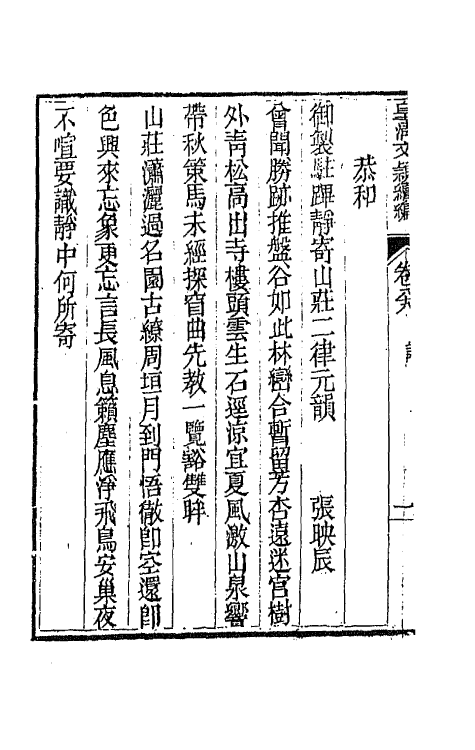 皇清文穎續編
卷
恭和
御製駐蹕靜寄山莊二律元韻　張映辰
曾聞勝跡推盤谷如此林巒合暫留芳杏遠迷宮樹
外青松高出寺樓頭雲生石逕涼宜夏風激山泉響
帶秋策馬未經探窅曲先教一覽豁雙眸
山莊瀟灑過名園古繚周垣月到門悟徹卽空還卽
色興來忘象更忘言長風息籟塵應淨飛鳥安巢夜
不喧要識靜中何所寄